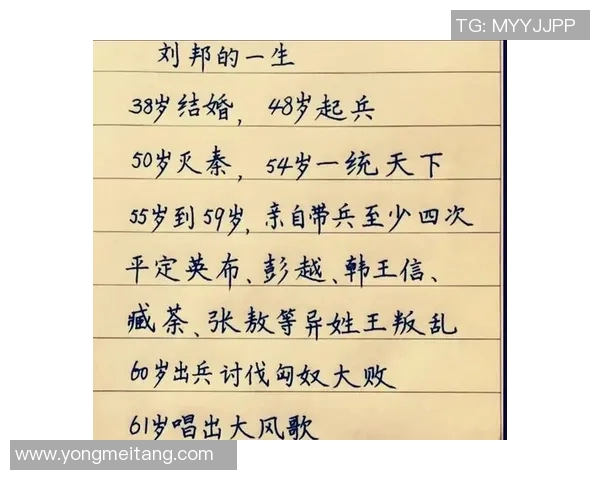 TG: MYYJJPP
刘邦的一生
38岁结婚，48岁起兵
50岁灭秦，54岁一统天下
55岁到59岁，亲自带兵至少四次
平定英布、彭越、韩王信、
臧荼、张敖等异姓王叛乱
60岁出兵讨伐匈奴大败
61岁唱出大风歌
www.yongmeitang.com